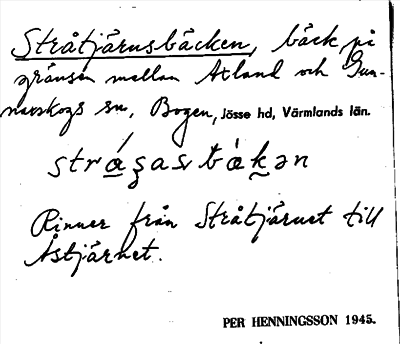 Stråtjärnsbäcken, bäck på
gränsen mellan Älland och Gun-
narskogs sn, Bogen, Jösse hd, Värmlands län.
strágasbàkən
Rinner från Stråtjärnet till
Åstjärnet.
PER HENNINGSSON 1945.